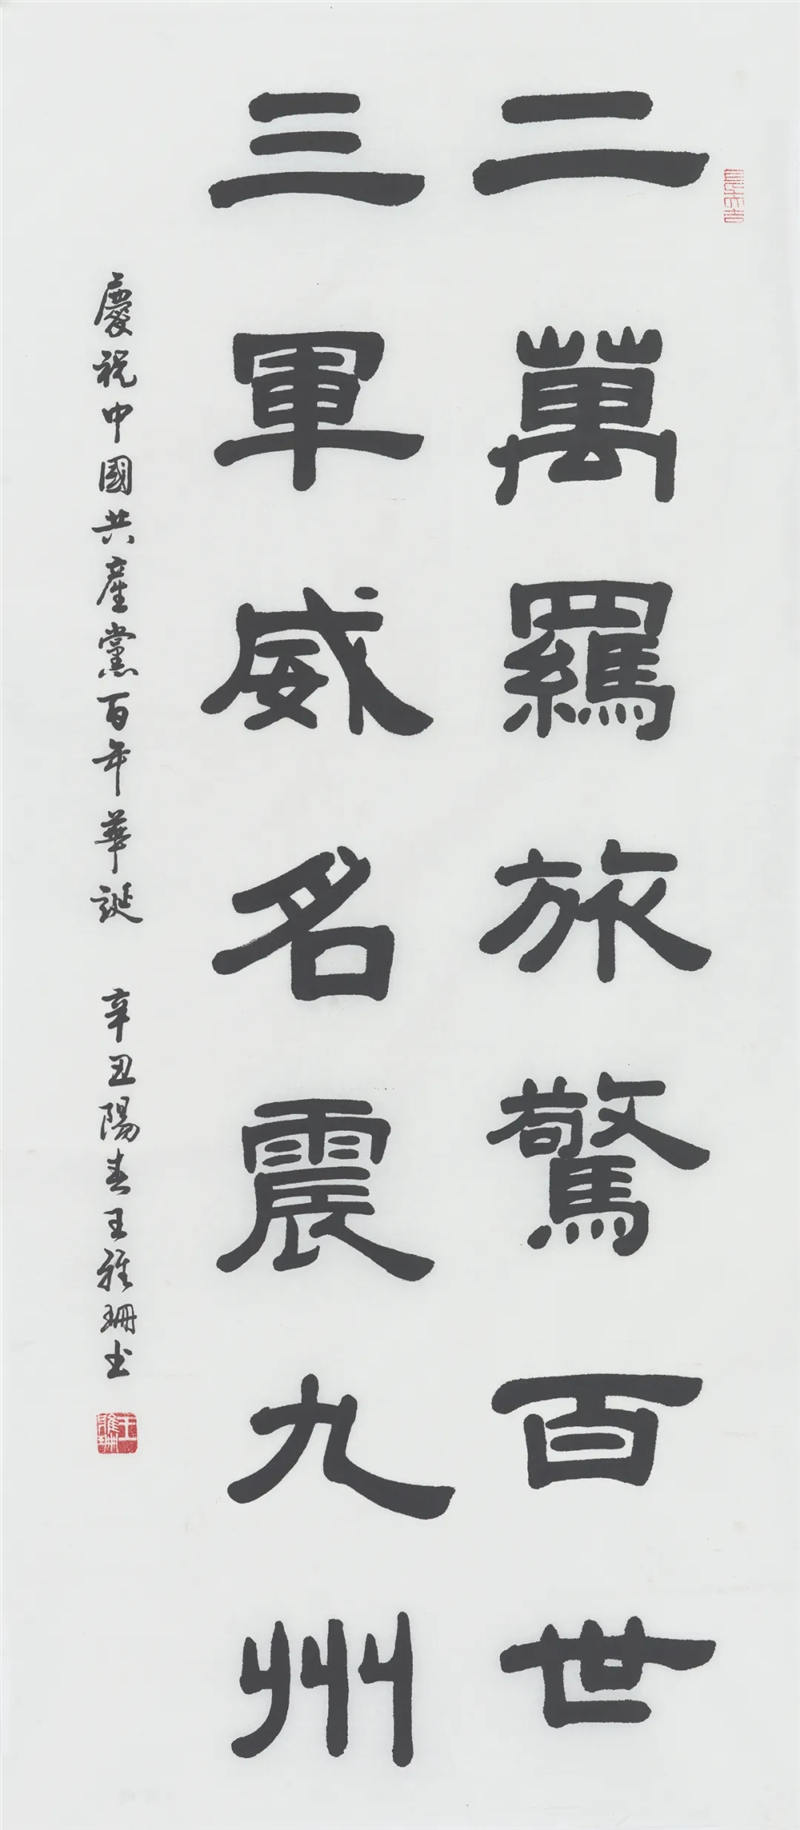 二萬羈旅驚百世
三軍威名震九州
慶祝中國共產黨百年華誕 辛丑陽春王雅珊书
王雅珊